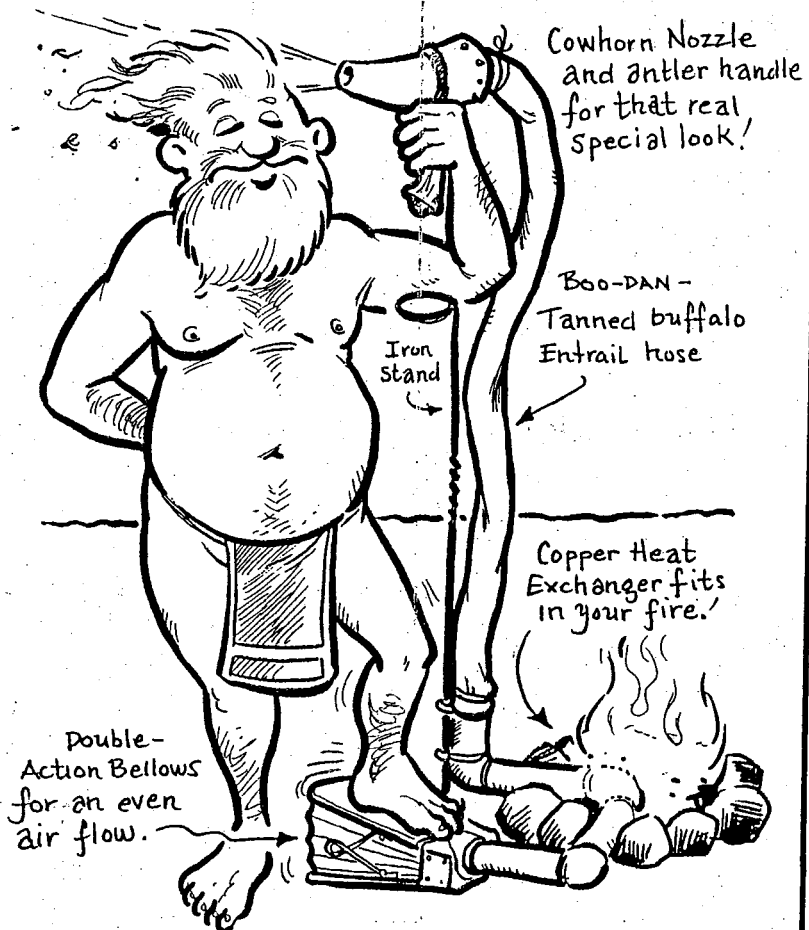 Cowhorn Nozzle
and antler handle
for that real
special look!
BOO-DAN-
Tanned buffalo
Entrail hose
Iron
Stand
Copper Heat
Exchanger fits
in your fire!
Double-
Action Bellows
for an even
air flow.